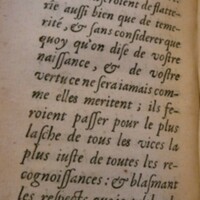 seroient de flatte-
rie aussi bien que de teme-
rité, & sans considerer que
quoy qu'on dise de vostre
naissance, & de vostre
vertu ce ne sera iamais com-
me elles meritent; ils fe-
roient passer pour le plus
lasche de tous les vices la
plus iuste de toutes les re-
cognoissances: & blasmant
les respects